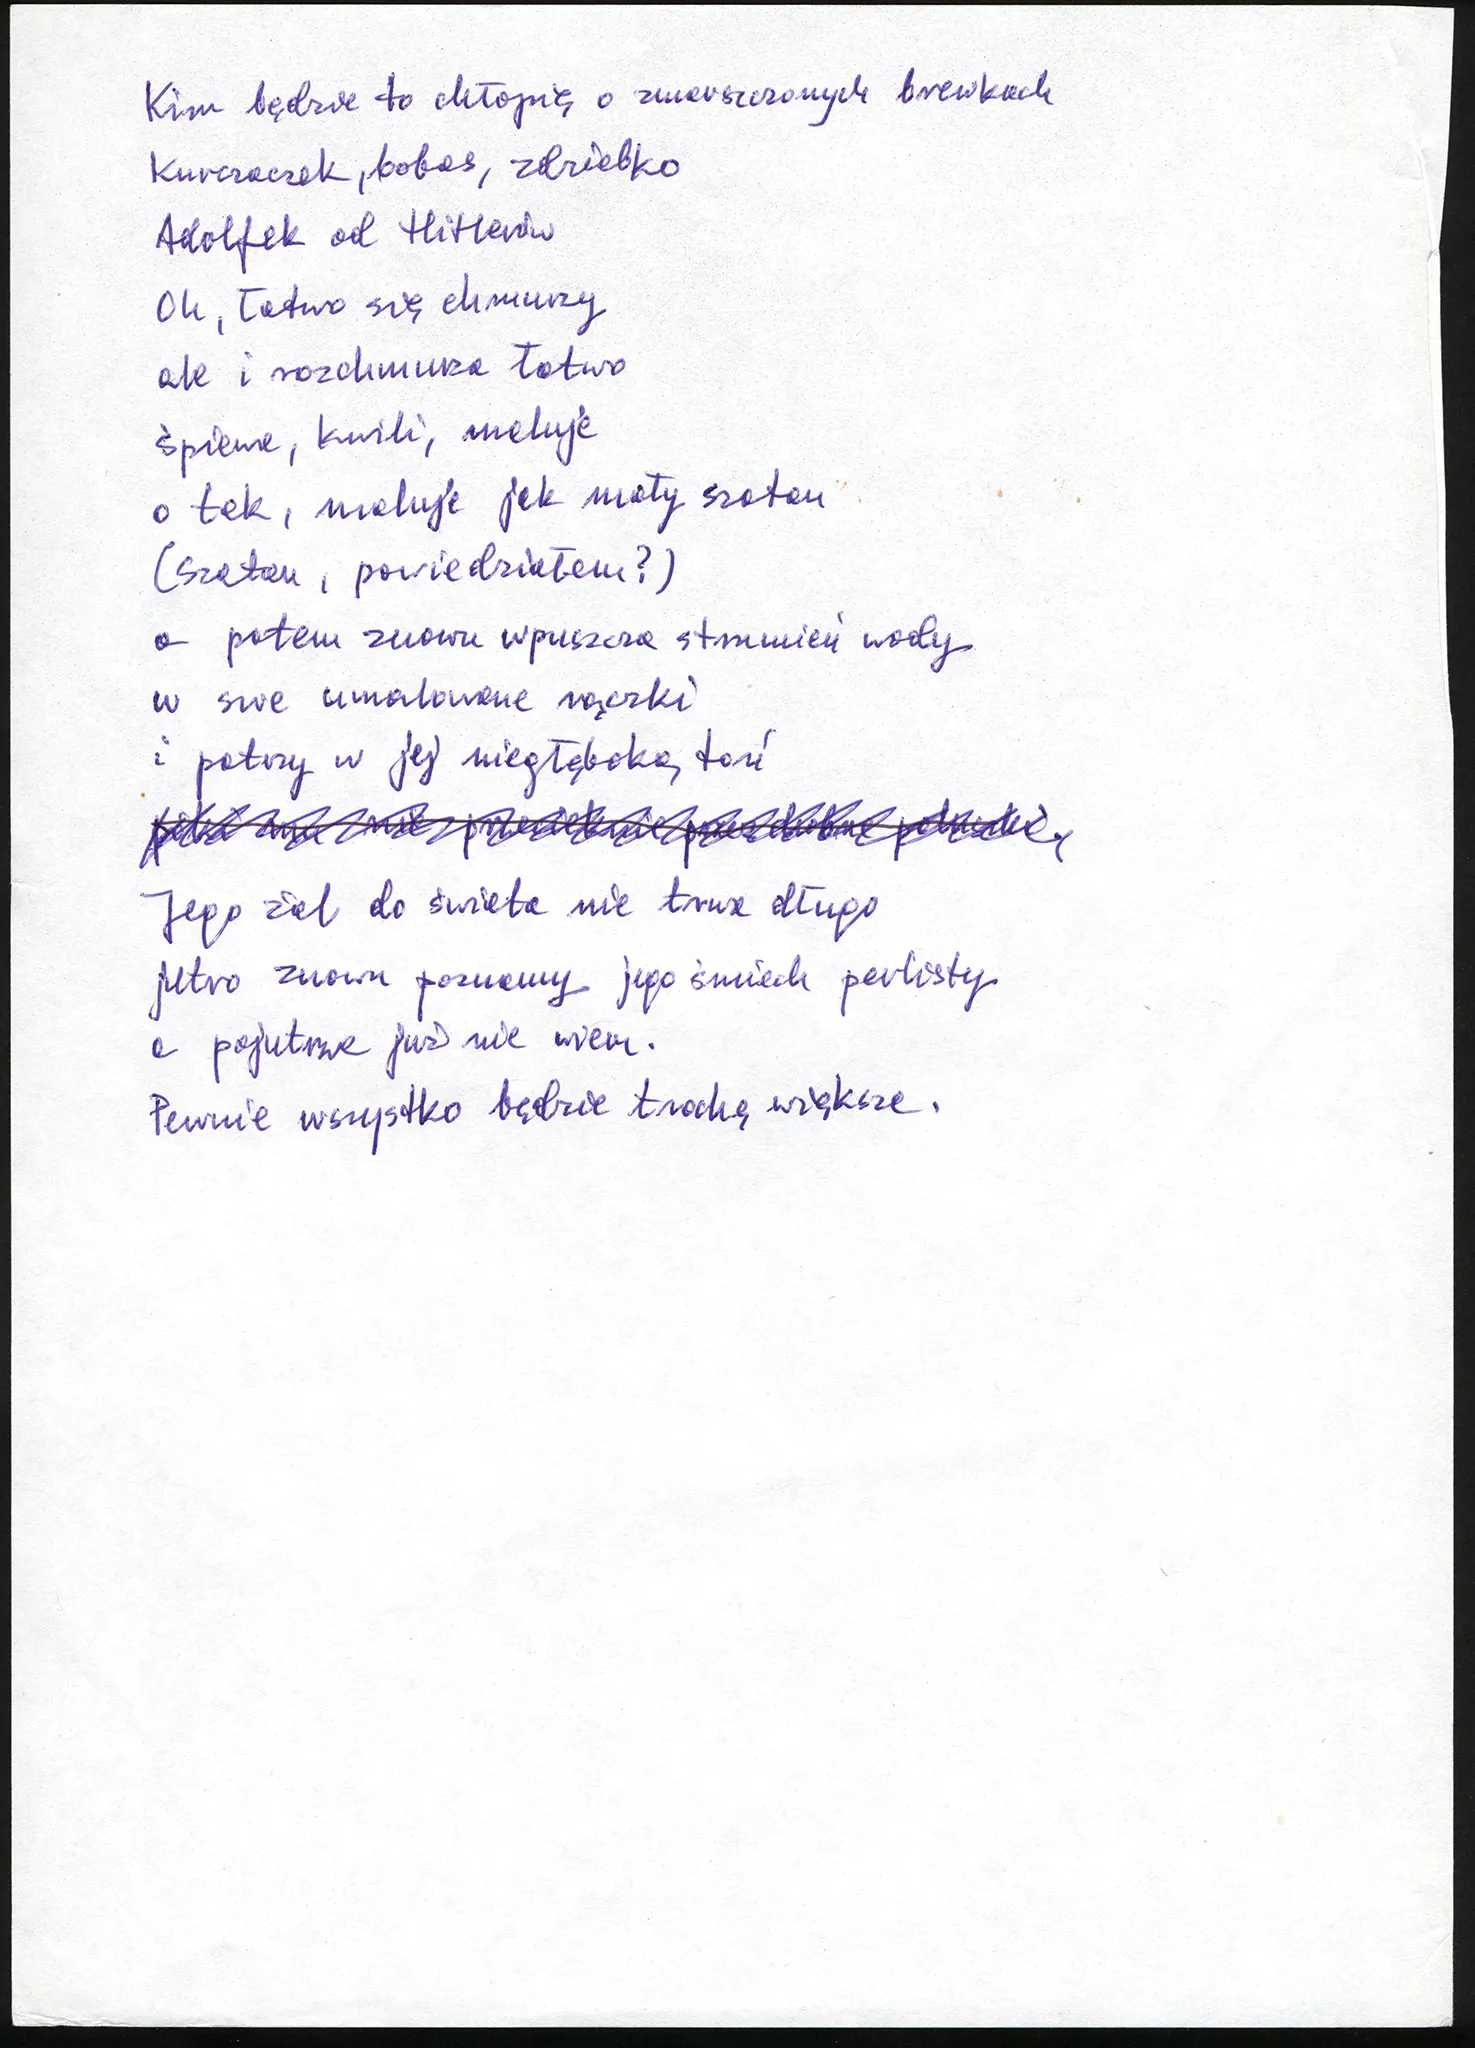 Kim będzie to chłopię o zmarszczonych brewkach
Kurczaczek, bobas, zdziebko
Adolfek od Hitlerów
Oh, łatwo się chmurzy
ale i rozchmurza łatwo
śpiewa, kwili, maluje
o tak, maluje jak mały szatan
(szatan, powiedziałem?)
a potem znowu wpuszcza strumień wody
w swe umalowane rączki
i patrzy w jej niegłęboką toń
Jego żal do świata nie trwa długo
jutro znowu poznamy jego śmiech perlisty
a pojutrze już nie wiem.
Pewnie wszystko będzie trochę większe.